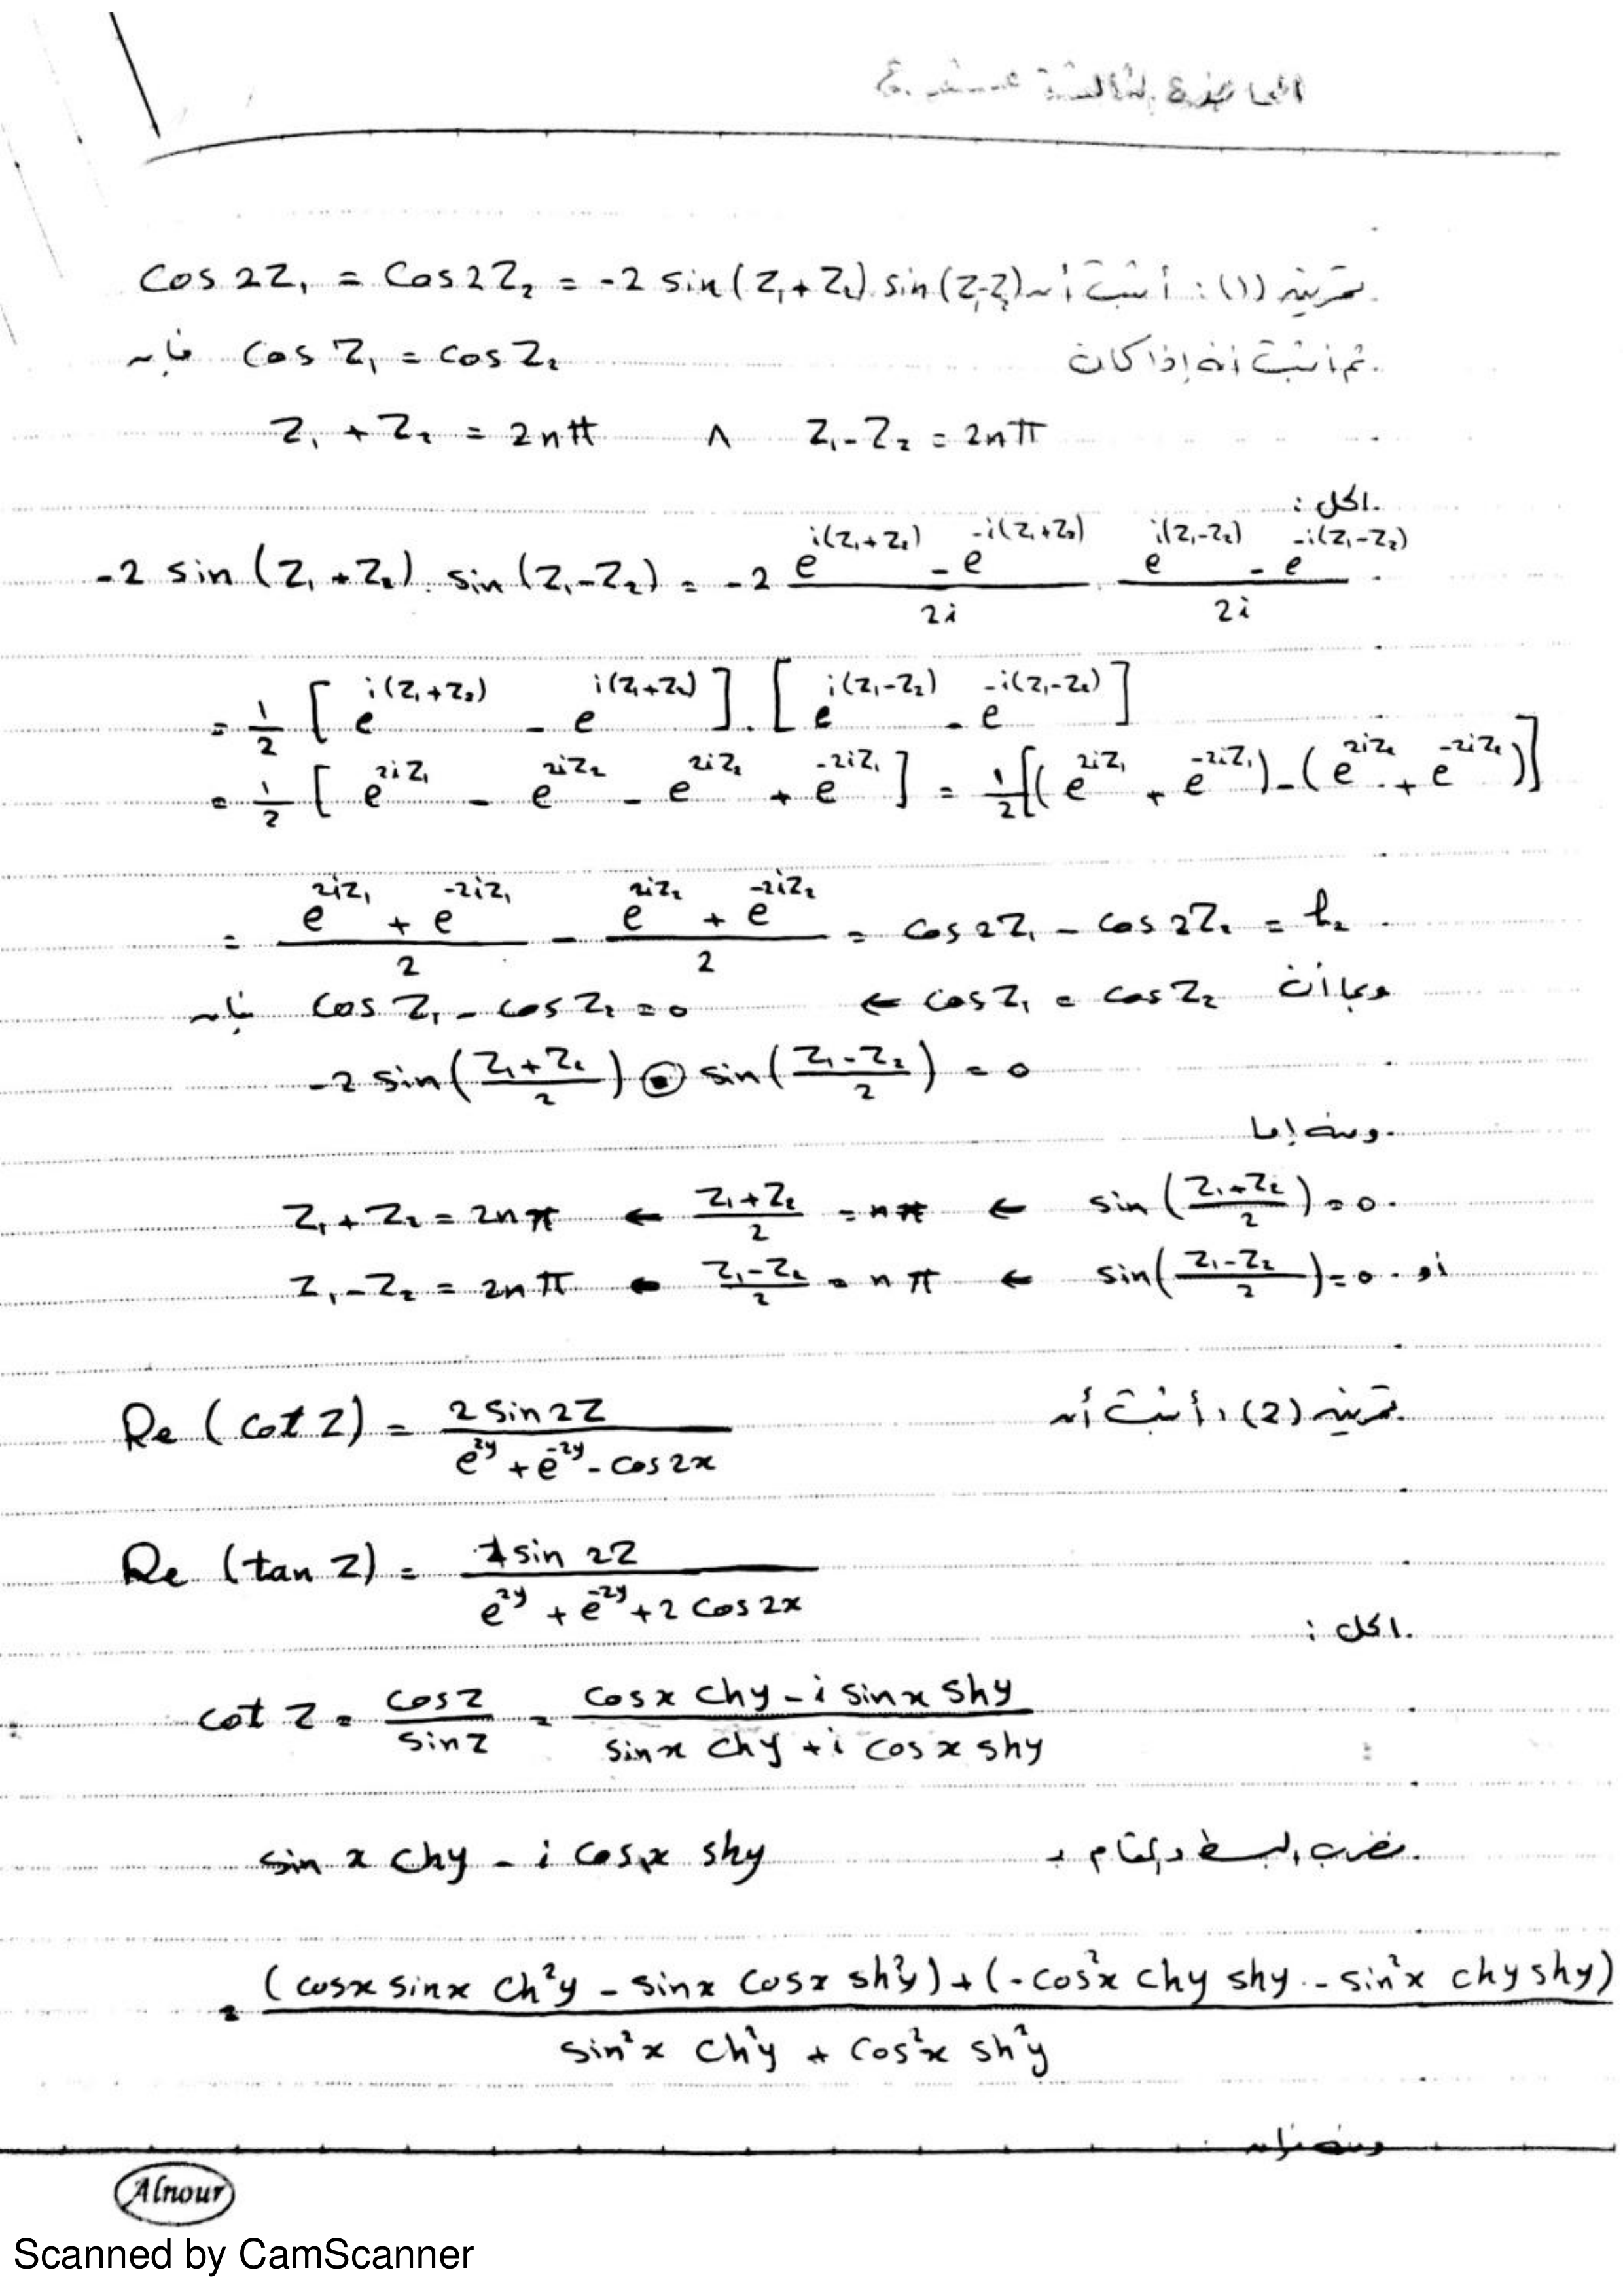 المحاضرة الثالثة عشرة
تمرين (1): أثبت أن Cos 2Z₁ = Cos 2Z₂ = -2 sin(Z₁+Z₂) sin(Z₁-Z₂)
ثم أثبت أنه إذا كان cos Z₁ = cos Z₂ فإن
Z₁ + Z₂ = 2nπ ∧ Z₁ - Z₂ = 2nπ
الحل:
-2 sin(Z₁+Z₂) . sin(Z₁-Z₂) = -2 (e^{i(Z₁+Z₂)} - e^{-i(Z₁+Z₂)})/2i . (e^{i(Z₁-Z₂)} - e^{-i(Z₁-Z₂)})/2i
= 1/2 [e^{i(Z₁+Z₂)} - e^{i(Z₁+Z₂)}] . [e^{i(Z₁-Z₂)} - e^{-i(Z₁-Z₂)}]
= 1/2 [e^{2iZ₁} - e^{2iZ₂} - e^{2iZ₂} + e^{-2iZ₁}] = 1/2 [(e^{2iZ₁} + e^{-2iZ₁}) - (e^{2iZ₂} + e^{-2iZ₂})]
= (e^{2iZ₁} + e^{-2iZ₁})/2 - (e^{2iZ₂} + e^{-2iZ₂})/2 = cos 2Z₁ - cos 2Z₂ = l₂
وبما أن cos Z₁ = cos Z₂ ← cos Z₁ - cos Z₂ = 0 فإن
-2 sin((Z₁+Z₂)/2) . sin((Z₁-Z₂)/2) = 0
ومنه إما
sin((Z₁+Z₂)/2) = 0 ← (Z₁+Z₂)/2 = nπ ← Z₁+Z₂ = 2nπ
أو sin((Z₁-Z₂)/2) = 0 ← (Z₁-Z₂)/2 = nπ ← Z₁-Z₂ = 2nπ
تمرين (2): أثبت أن Re (cot Z) = 2 sin 2Z / (e^{2y} + e^{-2y} - cos 2x)
Re (tan Z) = sin 2Z / (e^{2y} + e^{-2y} + 2 cos 2x)
الحل:
cot Z = cos Z / sin Z = (cos x chy - i sin x shy) / (sin x chy + i cos x shy)
نضرب البسط والمقام بـ sin x chy - i cos x shy
= ((cos x sin x ch²y - sin x cos x sh²y) + (-cos²x chy shy - sin²x chy shy)) / (sin²x ch²y + cos²x sh²y)
Alnour
Scanned by CamScanner